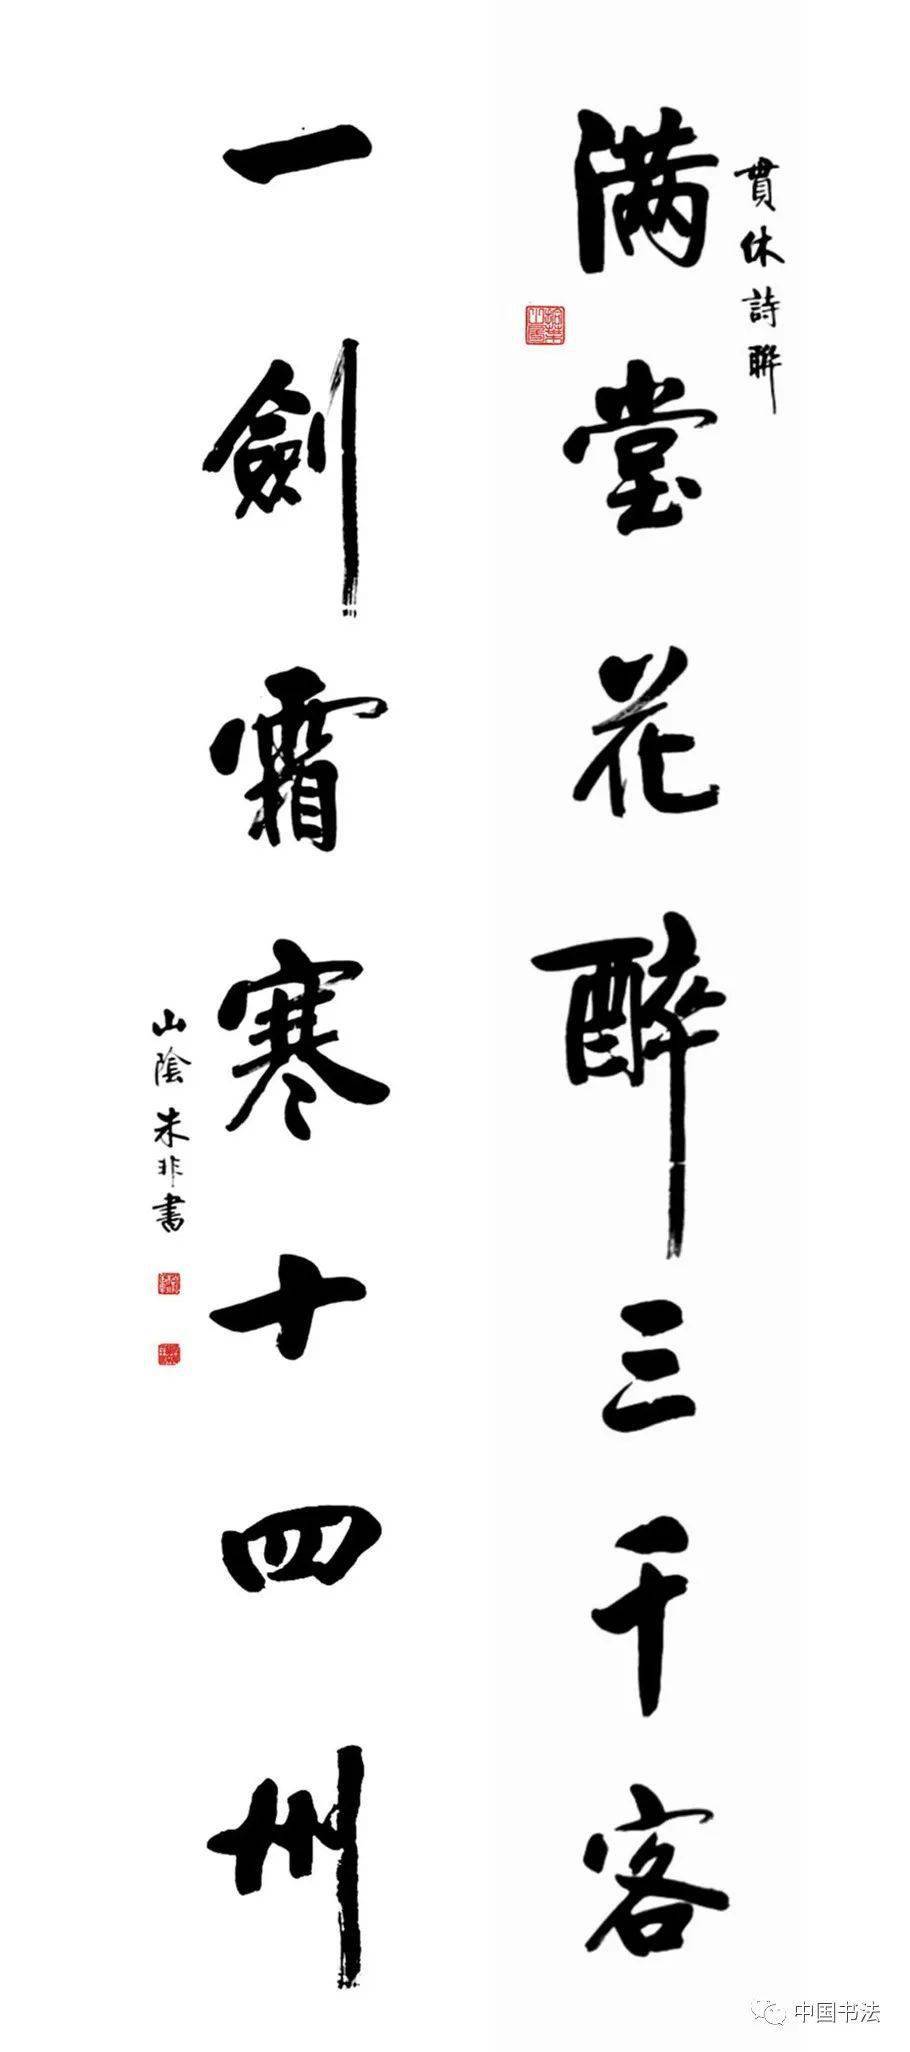 貫休詩聯
满堂花醉三千客
一劍霜寒十四州
山陰朱非書
中国书法